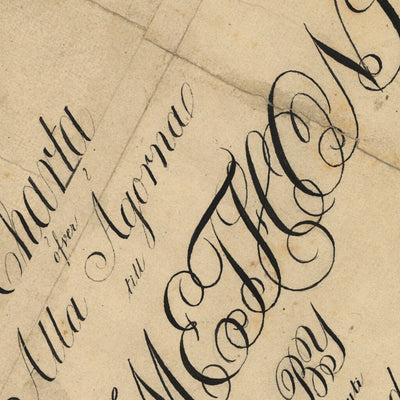 Charta
öfver
Alla Ägorna
till
METHON
BY